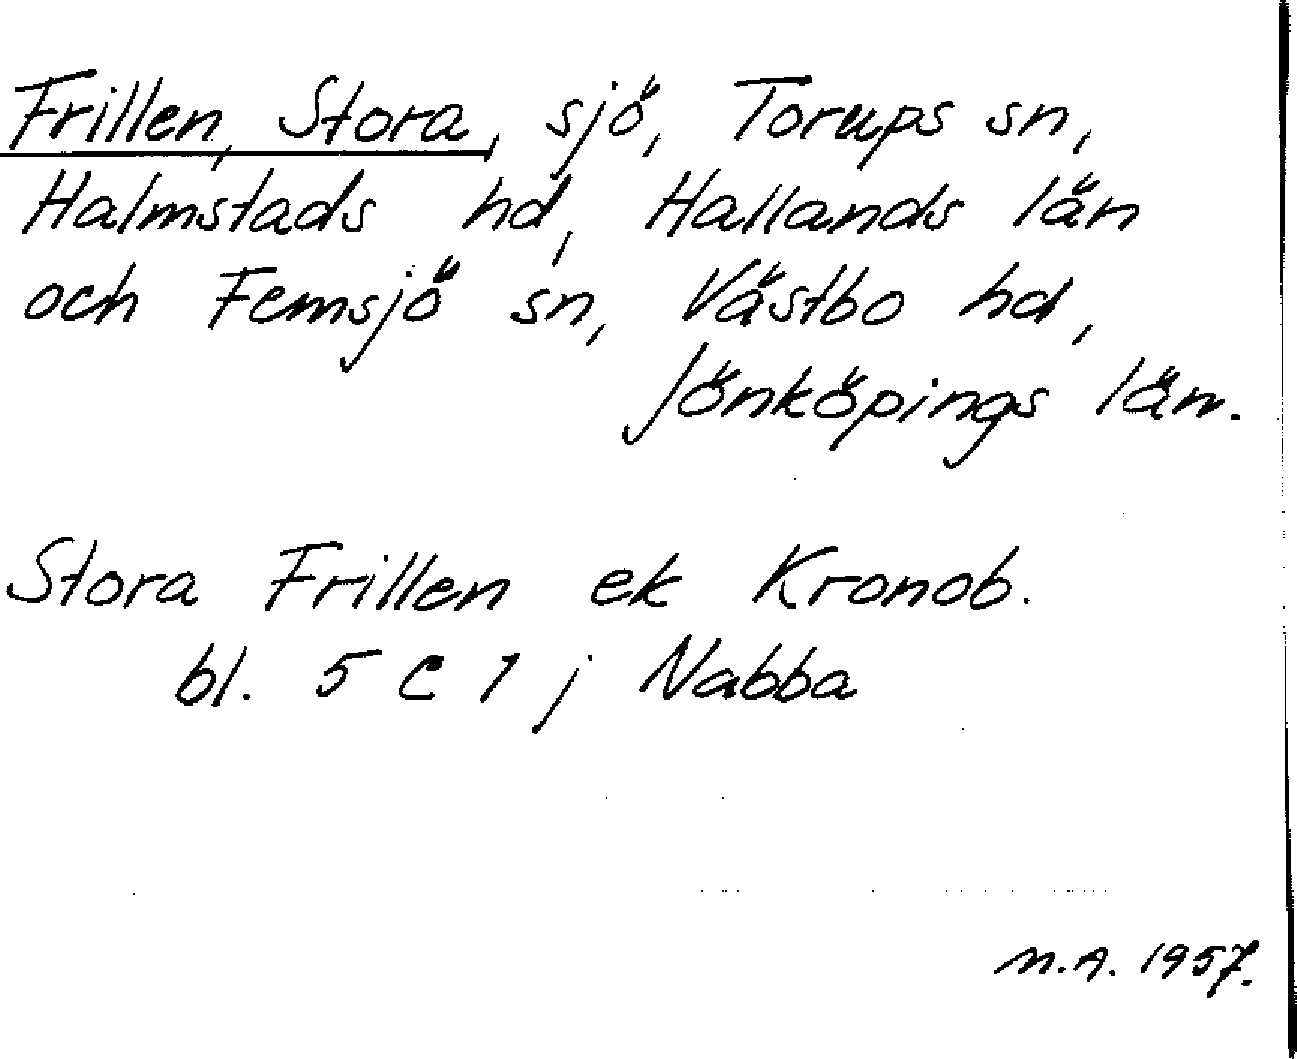 Frillen, Stora, sjö, Torups sn,
Halmstads hd, Hallands län
och Femsjö sn, Västbo hd,
Jönköpings län.
Stora Frillen ek Kronob.
bl. 5 C 1 j Nabba
M.A. 1957.